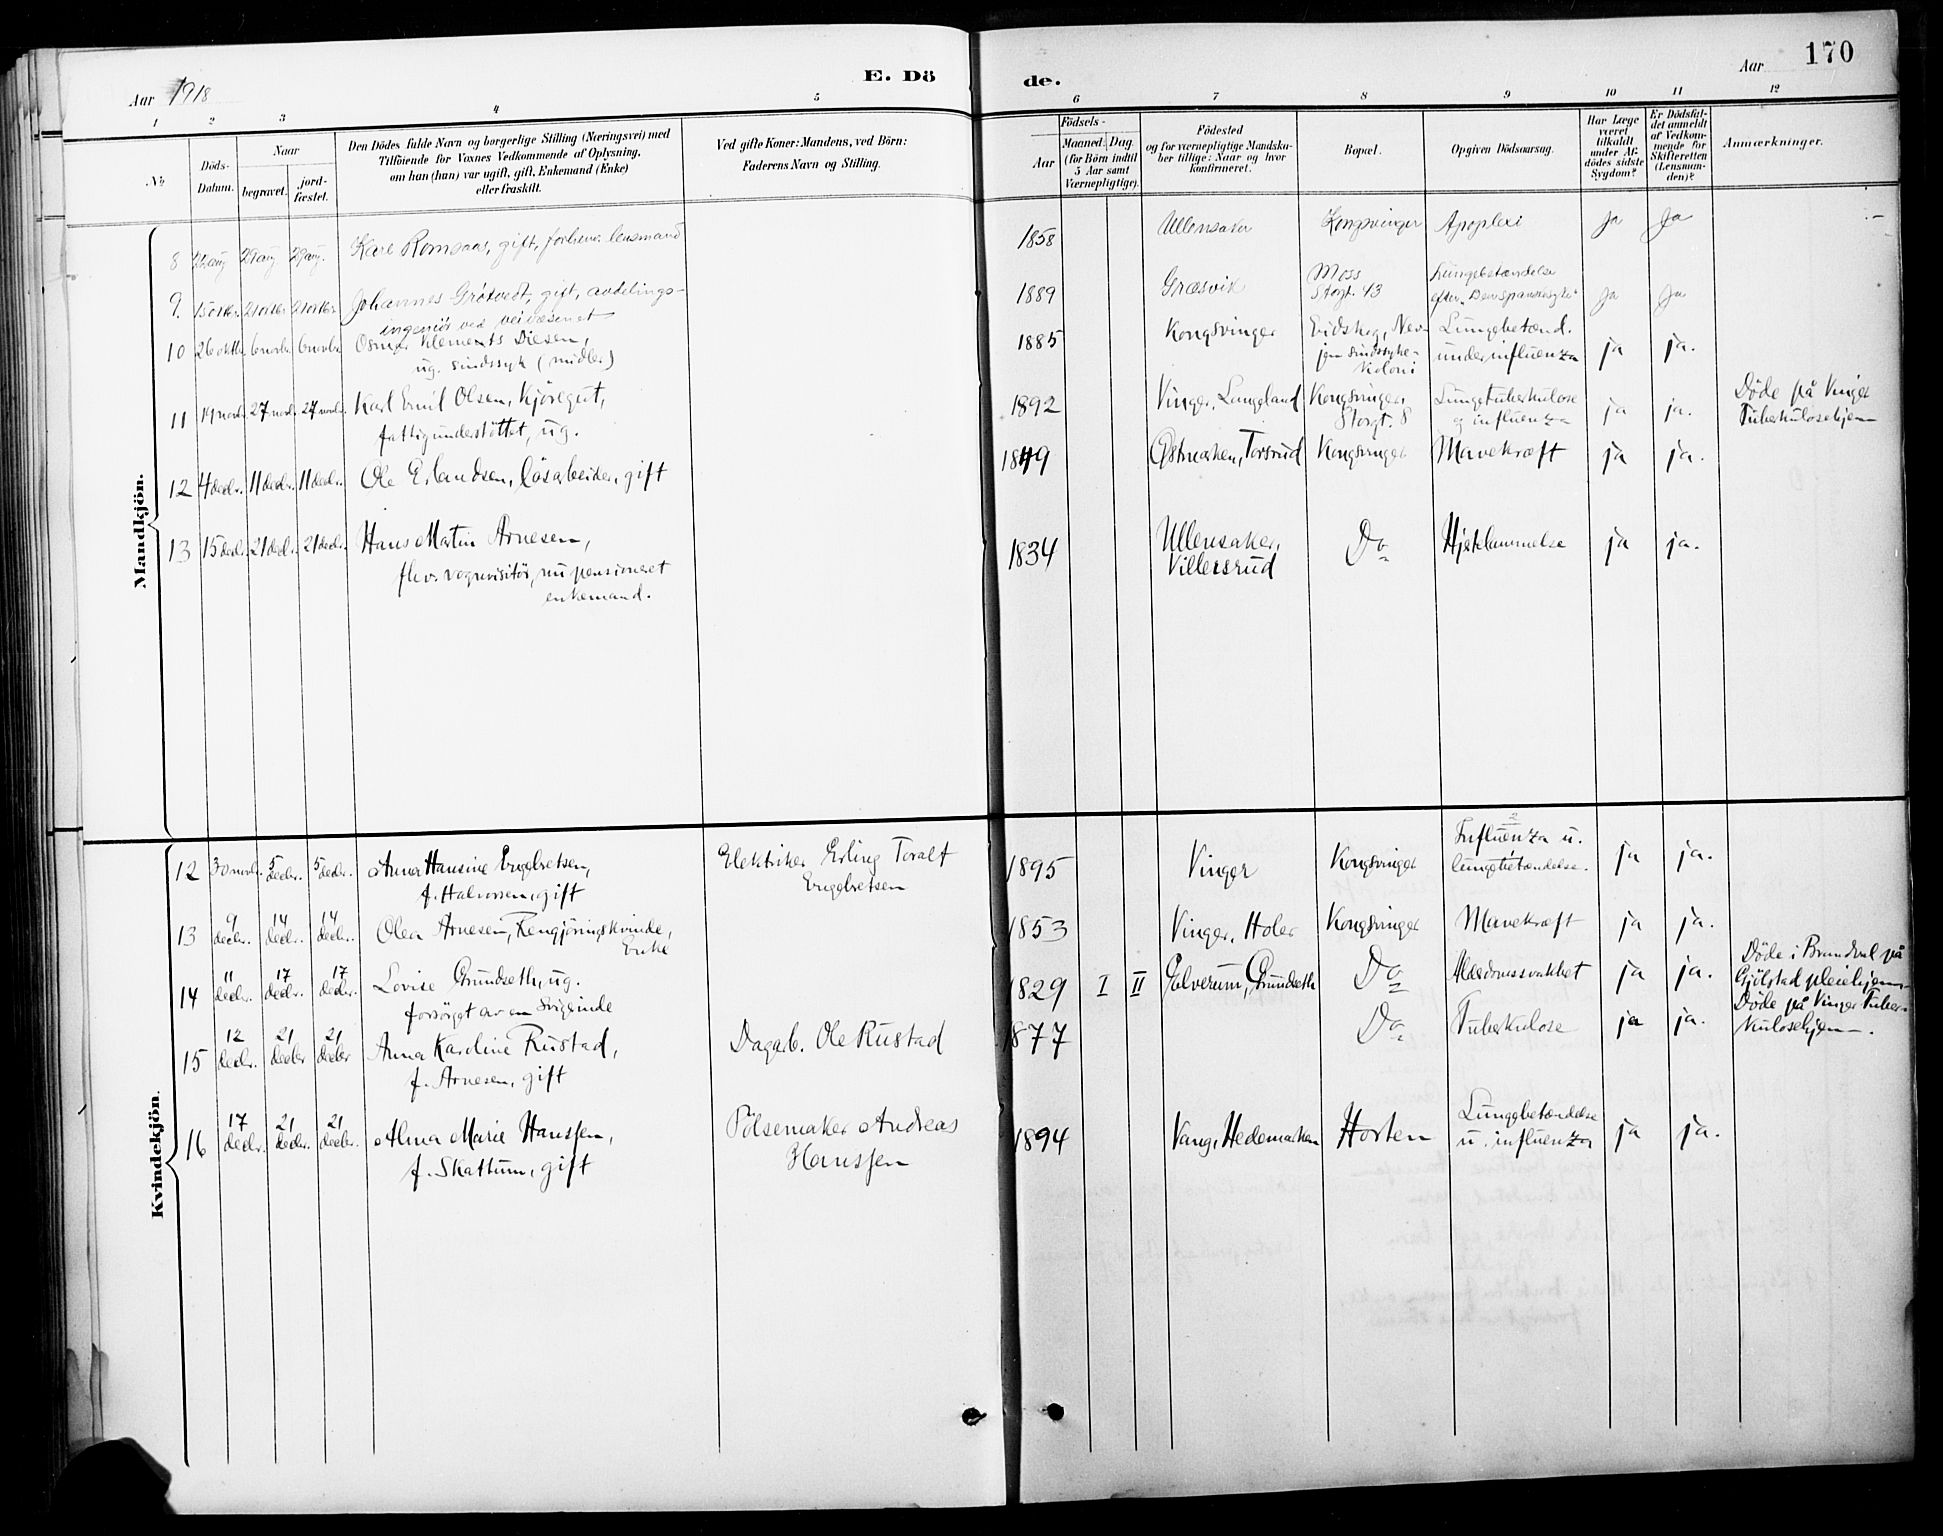 Aar 1918
E. Dö
de.
Aar
170
1 2 3 4 5 6 7 8 9 10 11 12
No
Döds-Datum.
Naar
begravet.
jordfæstet.
Den Dödes fulde Navn og borgerlige Stilling (Næringsvei) med
Tilföiende for Voxnes Vedkommende af Oplysning,
om han (hun) var ugift, gift, Enkemand (Enke)
eller fraskilt.
Ved gifte Koner: Mandens, ved Börn:
Faderens Navn og Stilling.
Födsels-
Aar
Maaned. Dag.
(for Börn indtil
5 Aar samt
Værnepligtige).
Födested
og for værnepligtige Mandska-
ber tillige: Naar og hvor
konfirmeret.
Bopæl.
Opgiven Dödsaarsag.
Har Læge
været
tilkaldt
under Af-
dödes sidste
Sygdom?
Er Dödsfal-
det anmeldt
af Vedkom-
mende for
Skifteretten
(Lensman-
den)?
Anmærkninger.
Mandkjön.
8 29 aug. Karl Romsaas, gift, forhenv. lensmand 1858 Ullensaker Kongsvinger Apoplexi ja ja
9. 15 oktbr. 21 oktbr. 21 oktbr. Johannes Grötvedt, gift, avdelings-
ingeniör ved veivæsenet
1889 Græsvik Moss
Storgt. 43
Lungebetændelse
efter "Den spanske syke" ja ja
10 26 oktbr. 6 novbr. 6 novbr. Osmar Klements Diesen,
ug. sindssyk (midler.)
1885 Kongsvinger Eidskog,
sindssyke-
koloni
Lungebetænd.
under influenza ja ja.
11 19 novbr. 27 novbr. 27 novbr. Karl Emil Olsen, Kjöregut,
fattigunderstöttet, ug.
1892 Vinger, Lungeland Kongsvinger,
Storgt. 8
Lungetuberkulose
og influenza ja ja.
Döde på Vinger
Tuberkulosehjem
12 4 decbr. 11 decbr. 11 decbr. Ole Erlandsen, lösarbeider, gift 1849 Östmarken, Torsrud Kongsvinger Mavekræft ja ja.
13 15 decbr. 21 decbr. 21 decbr. Hans Martin Arnesen,
fhv. vognvisitör, nu pensioneret
enkemand.
1834 Ullensaker,
Villersrud
Do Hjertelammelse ja ja.
Kvindekjön.
12 30 novbr. 5 decbr. 5 decbr. Anna Hansine Engebretsen,
f. Halvorsen, gift
Elektriker Erling Toralf
Engebretsen
1895 Vinger Kongsvinger Influenza u.
lungebetændelse. ja ja.
13 9 decbr. 14 decbr. 14 decbr. Olea Arnesen, Rengjöringskvinde,
Enke
1853 Vinger, Holer Kongsvinger Mavekræft ja ja.
14 11 decbr. 17 decbr. 17 decbr. Lovise Grundseth, ug.
forsörget av en svigerinde
1829 I II Elverum, Grundseth Do Alderdomssvakhet ja ja.
Döde i Brandval på
Gjölstad pleiehjem.
15 12 decbr. 21 decbr 21 decbr Anna Karoline Rustad,
f. Arnesen, gift
Dagarb. Ole Rustad
1877 Do Tuberkulose ja ja.
Döde på Vinger Tuber-
kulosehjem.
16 17 decbr. 21 decbr. 21 decbr. Alma Marie Hanssen,
f. Skattum, gift
Pölsemaker Andreas
Hanssen
1894 Vang, Hedemarken Horten Lungebetændelse
u. influenza ja ja.